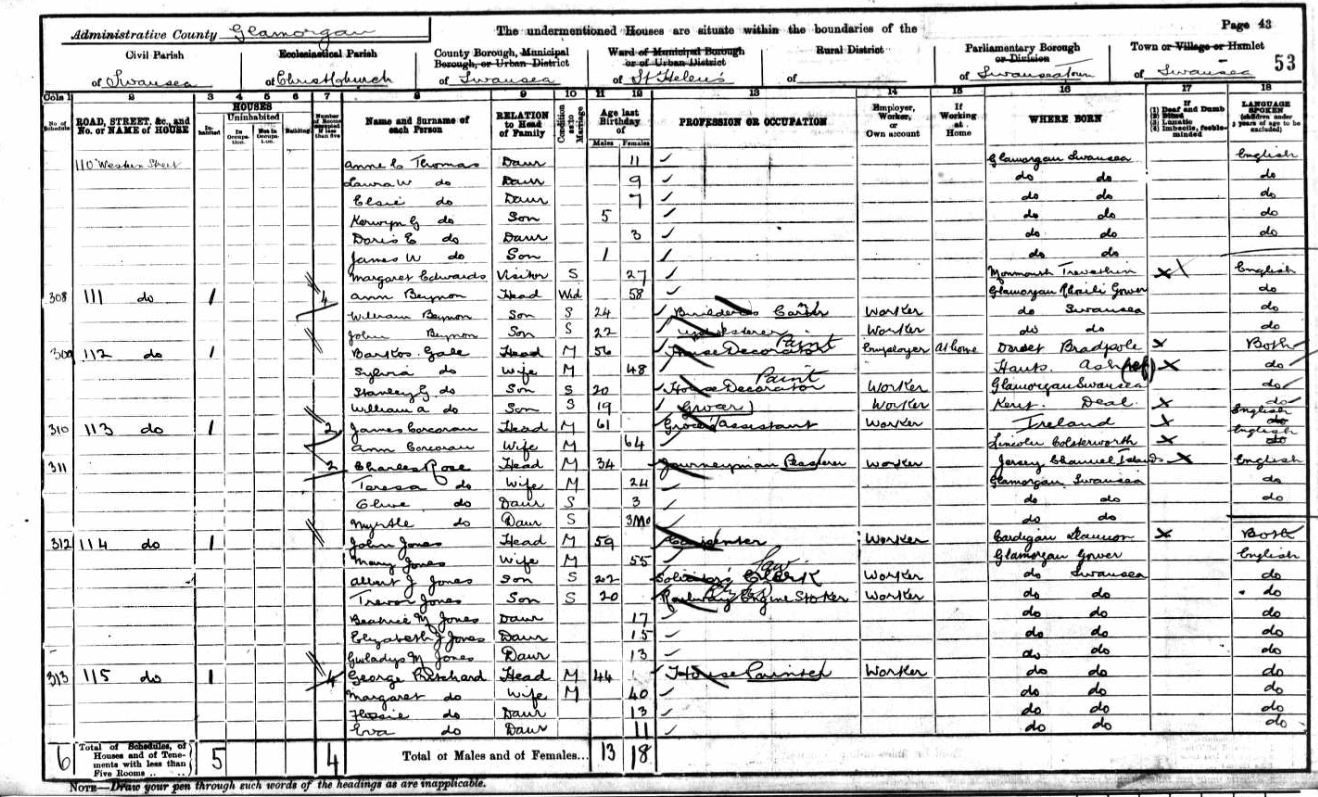 Page 43
Administrative County Glamorgan
The undermentioned Houses are situate within the boundaries of the
Civil Parish of Swansea
Ecclesiastical Parish of Christ Church
County Borough, Municipal Borough, or Urban District of Swansea
Ward of Municipal Borough or of Urban District of St Helen's
Rural District of
Parliamentary Borough or Division of Swansea Town
Town or Village or Hamlet of Swansea
53
Cols 1 2 3 4 5 6 7 8 9 10 11 12 13 14 15 16 17 18
No. of Schedule
ROAD, STREET, &c., and No. or NAME of HOUSE
HOUSES
Inhabited
Uninhabited
In Occupation
Not in Occupation
Building
Name and Surname of each Person
RELATION to Head of Family
Condition as to Marriage
Age last Birthday of
Males Females
PROFESSION OR OCCUPATION
Employer, Worker, or Own account
If Working at Home
WHERE BORN
If (1) Deaf and Dumb (2) Blind (3) Lunatic (4) Imbecile, feeble-minded
LANGUAGE SPOKEN (children under 3 years of age to be excluded)
110 Western Street Anne E Thomas Daur 11 Glamorgan Swansea English
Laura W do Daur 9 do do do
Elsie do Daur 7 do do do
Kerwyn G do Son 5 do do do
Doris E do Daur 3 do do do
James W do Son 1 do do
Margaret Edwards Visitor S 27 Monmouth Trevethin English
308 111 do 1 4 Ann Beynon Head Wid 58 Glamorgan Gower do
William Beynon Son S 24 Builders Worker do Swansea do
John Beynon Son S 22 Worker do do do
309 112 do 1 Gale Head M 56 House Decorator Paint Employer At home Dorset Bradpole Both
Sylvia do Wife M 48 Hants do
Stanley G do Son S 20 House Decorator Paint Worker Glamorgan Swansea do
William A do Son S 19 Grocer Worker Kent Deal do
310 113 do 1 2 James Corcoran Head M 61 Grocers assistant Worker Ireland English do
Ann Corcoran Wife M 64 Lincoln Colsterworth English do
311 2 Charles Rose Head M 34 Journeyman Plasterer Worker Jersey Channel Islands English
Teresa do Wife M 24 Glamorgan Swansea do
Olive do Daur S 3 do do do
Myrtle do Daur S 3Mo do do
312 114 do 1 John Jones Head M 59 Carpenter Worker Cardigan Llannon Both
Mary Jones Wife M 55 Glamorgan Gower English
Albert J Jones Son S 22 Solicitors Clerk Law Worker do Swansea do
Trevor Jones Son S 20 Railway Engine Stoker Worker do do do
Beatrice M Jones Daur 17 do do do
Elizabeth J Jones Daur 15 do do do
Gwladys M Jones Daur 13 do do do
313 115 do 1 4 George Pritchard Head M 44 House Painter Worker do do do
Margaret do Wife M 40 do do do
Flossie do Daur 13 do do do
Eva do Daur 11 do do do
6 Total of Schedules, of Houses and of Tenements with less than Five Rooms 5 4 Total of Males and of Females... 13 18
NOTE—Draw your pen through such words of the headings as are inapplicable.